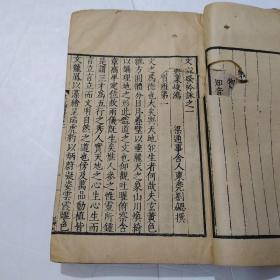 文心雕龍
梁通事舍人東莞劉勰撰
原道第一
文之為德也大矣與天地並生者何哉夫玄黃色
雜方圓體分日月疊璧以垂麗天之象山川煥綺
以鋪理地之形此蓋道之文也仰觀吐曜俯察含
章高卑定位故兩儀既生矣惟人參之性靈所鍾
是謂三才為五行之秀人實天地之心生心生而
言立言立而文明自然之道也傍及萬品動植皆
文龍鳳以藻繪呈瑞虎豹以炳蔚凝姿雲霞雕色